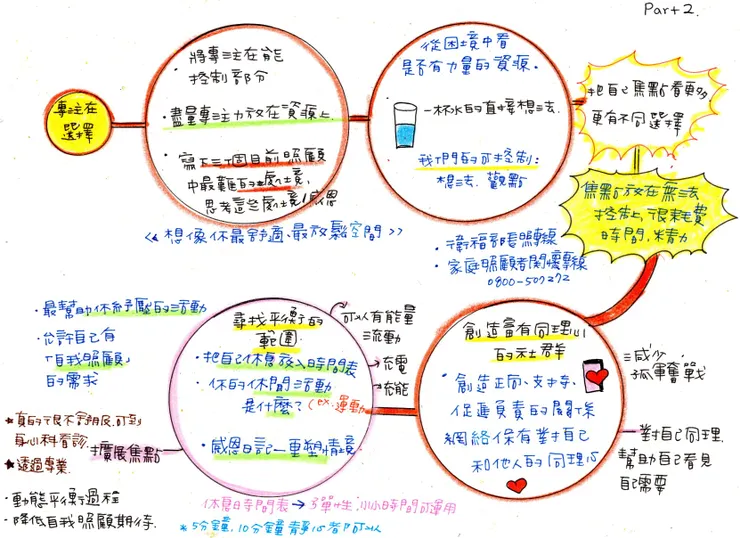 Part 2.
專注在
選擇
將專注在能
控制部分
・盡量專注力放在資源上.
・寫下三個目前照顧
中最難的處境,
思考這些處境/感恩
從困境中看
是否有力量的資源.
・一杯水的直接想法.
我們的可控制:
想法.觀點
把自己焦點看更多
更有不同選擇
焦點放在無法
控制上,很耗費
時間,精力
<< 想像你最舒適、最放鬆空間 >>
・衛福部長照專線
・家庭照顧者關懷專線
0800-507272
創造富有同理心
的社群
・創造正向、支持、
促進負責的關係
網絡保有對自己
和他人的同理心
=減少
孤軍奮戰
對自己同理
幫助自己看見
自己需要
尋找平衡的
範圍.
・把自己休息放入時間表
・你的休閒活動
是什麼?(ex.運動
・感恩日記—重塑情境
可以有能量
流動
充電
充能
・最幫助你紓壓的活動
・允許自己有
「自我照顧」
的需求
擴展焦點
★真的很不舒服.可到
身心科看診.
★透過專業
・動態平衡過程
・降低自我照顧期待.
休息時間表→彈性,小小時間可運用
*5分鐘,10分鐘靜心都可以